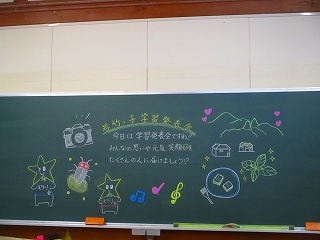 若竹っ子学習発表会
今日は学習発表会ですね!
みんなの思いや元気、笑顔を
たくさんの人に届けましょう♡